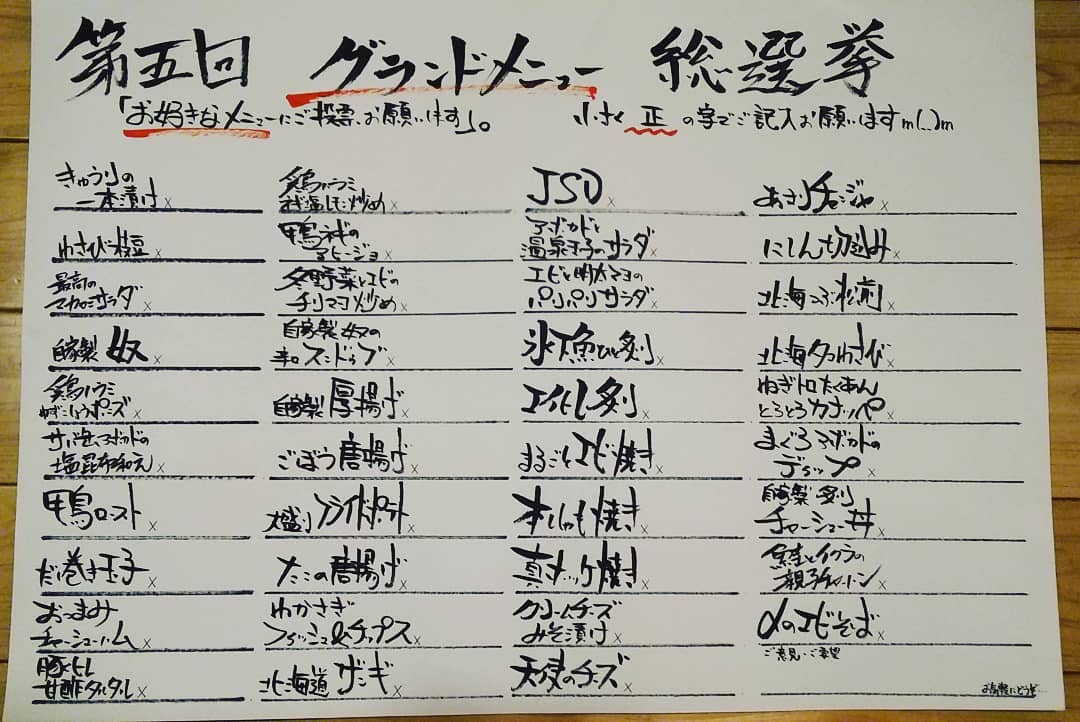 第五回 グランドメニュー 総選挙
「お好きなメニューにご投票、お願いします」。 小さく 正 の字でご記入お願いしますm(_ _)m
きゅうりの
一本漬け x
わさび枝豆 x
最高の
マカロニサラダ x
自家製 奴 x
鶏ハラミ
ゆずこしょうポン酢 x
サバ缶とアボカドの
塩昆布和え x
鴨ロースト x
だし巻き玉子 x
おつまみ
チャーシューハム x
豚ヒレ
甘酢タルタル x
鶏ハラミ
ねぎ塩レモン炒め x
鴨ネギの
アヒージョ x
冬野菜とエビの
チリマヨ炒め x
自家製 奴の
和 スンドゥブ x
自家製 厚揚げ x
ごぼう唐揚げ x
大盛り フライドポテト x
たこの唐揚げ x
わかさぎ
フィッシュ&チップス x
北海道 ザンギ x
JSO x
アボカドと
温泉玉子のサラダ x
エビと明太マヨの
パリパリサラダ x
氷下魚ひと炙り x
エイヒレ炙り x
まるごとエビ焼き x
本ししゃも焼き x
真ホッケ焼き x
クリームチーズ
みそ漬け x
天使のチーズ x
あさりチャンジャ x
にしん切込み x
北海つぶ松前 x
北海タコわさび x
ねぎトロたくあん
とろとろカナッペ x
まぐろアボカドの
ディップ x
自家製 炙り
チャーシュー丼 x
鮭とイクラの
親子チャーハン x
αのエビそば x
ご意見・ご要望
お気軽にどうぞ…